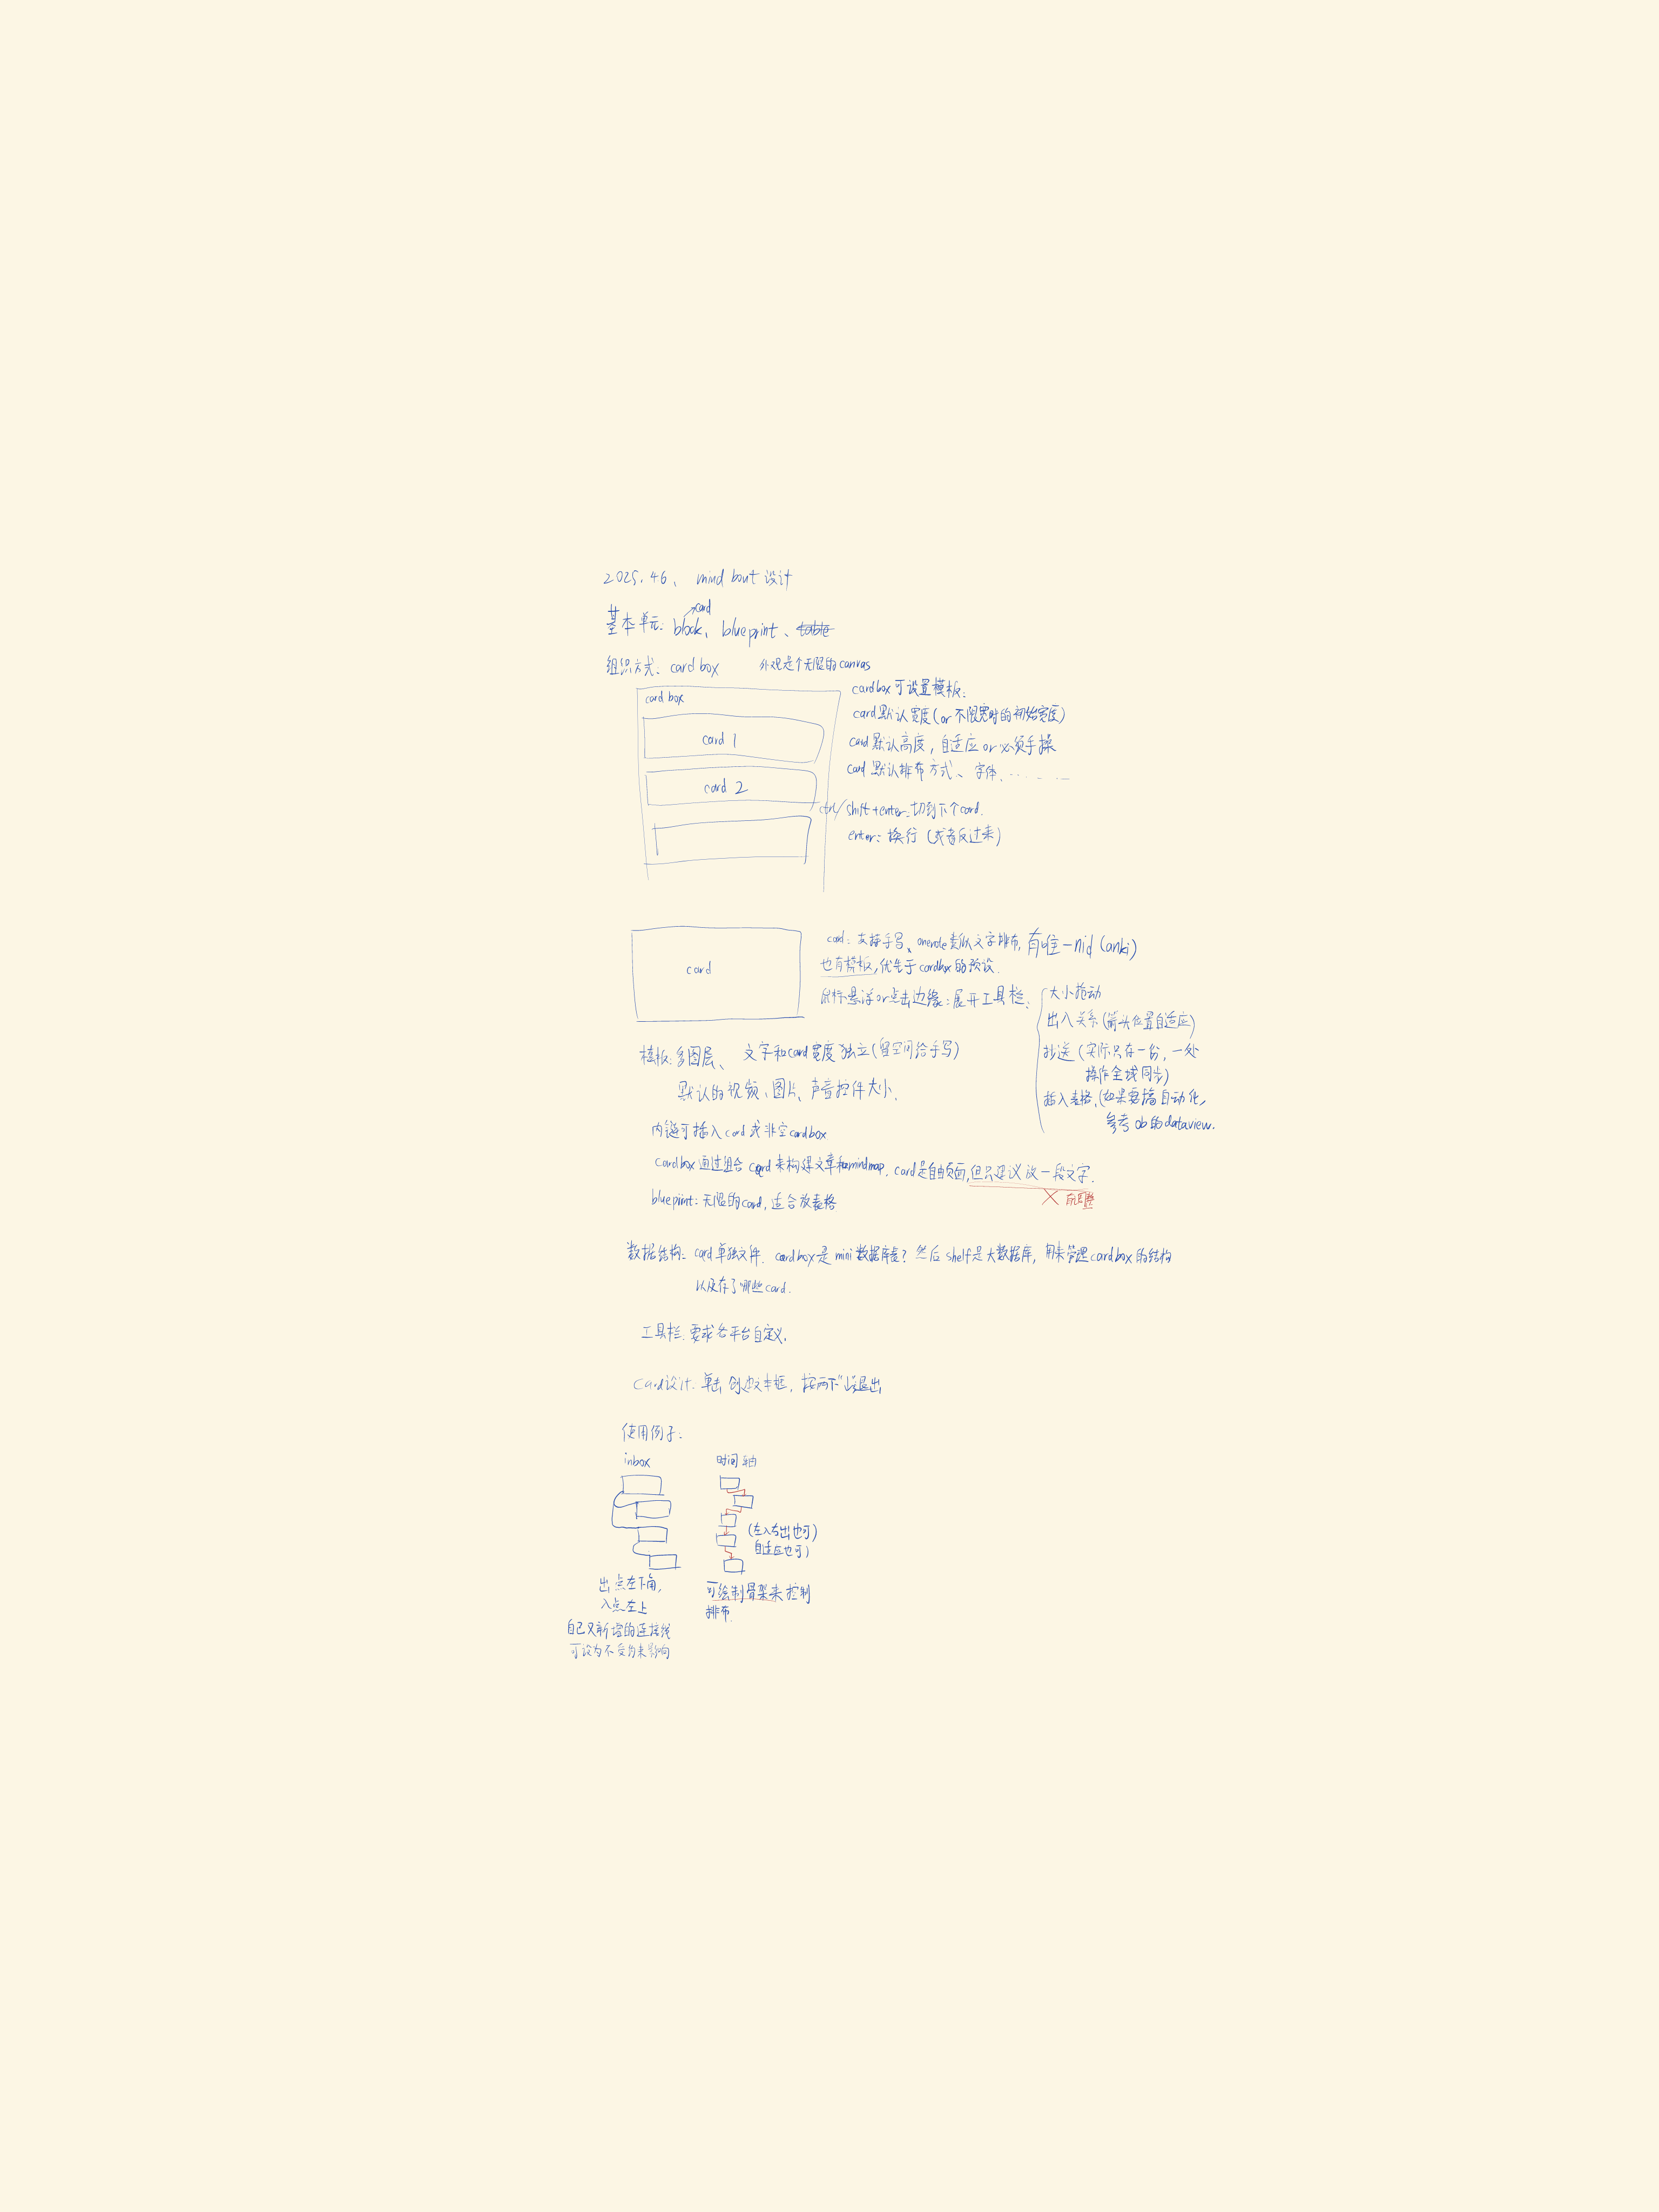 2025.4.6、 mind bout 设计
card
基本单元: block、blueprint、table
组织方式: cardbox 外观是个无限的canvas
card box
card 1
card 2
cardbox可设置模板:
card默认宽度(or不限宽时的初始宽度)
card默认高度,自适应or必须手操
card默认排布方式、字体、……
ctrl/shift+enter:切到下个card.
enter:换行(或者反过来)
card
card:支持手写、onenote类似文字排布,有唯一nid(anki)
也有模板,优先于cardbox的预设.
鼠标悬浮or点击边缘:展开工具栏:
大小拖动
出入关系(箭头位置自适应)
抄送(实际只存一份,一处
操作全域同步)
插入表格,(如果要搞自动化,
参考ob的dataview.
模板:多图层、文字和card宽度独立(留空间给手写)
默认的视频、图片、声音控件大小.
内链可插入card或非空cardbox
cardbox通过组合card来构建文章和mindmap.card是自由页面,但只建议放一段文字.
×
blueprint:无限的card,适合放表格
数据结构:card单独文件.cardbox是mini数据库?然后shelf是大数据库,用来管理cardbox的结构
以及存了哪些card.
工具栏:要求各平台自定义.
card设计:单击创建文本框,按两下
退出
使用例子:
inbox
时间轴
(左入右出也可)
自适应也可)
出点左下角,
入点左上
自己又新增的连接线
可设为不受约束影响
可绘制骨架来控制
排布.